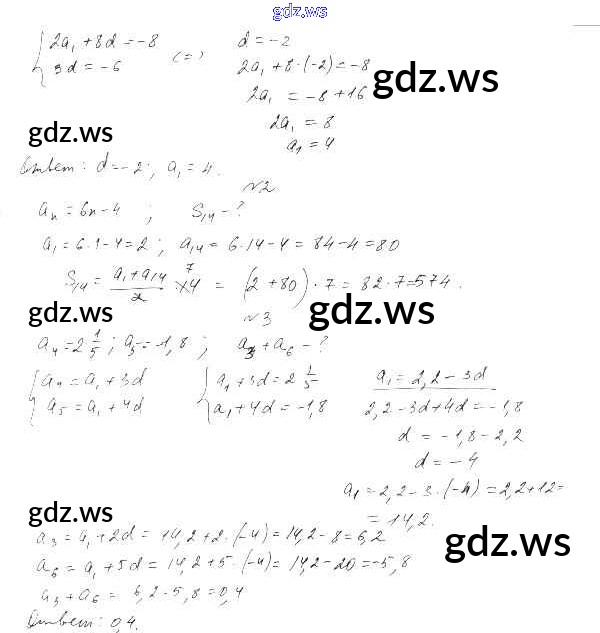 gdz.ws
{ 2a₁ + 8d = -8
3d = -6 <=> d = -2
2a₁ + 8·(-2) = -8
2a₁ = -8 + 16
2a₁ = 8
a₁ = 4
gdz.ws
gdz.ws
Ответ: d = -2; a₁ = 4.
№2
aₙ = 6n - 4 ; S₁₄ - ?
a₁ = 6·1 - 4 = 2 ; a₁₄ = 6·14 - 4 = 84 - 4 = 80
S₁₄ = (a₁ + a₁₄)/2 · 14 7 = (2 + 80)·7 = 82·7 = 574.
gdz.ws
gdz.ws
№3
a₄ = 2 1/5 ; a₅ = -1,8 ; a₃ + a₆ - ?
{ a₄ = a₁ + 3d
a₅ = a₁ + 4d
{ a₁ + 3d = 2 1/5
a₁ + 4d = -1,8
a₁ = 2,2 - 3d
2,2 - 3d + 4d = -1,8
d = -1,8 - 2,2
d = -4
a₁ = 2,2 - 3·(-4) = 2,2 + 12 =
= 14,2.
gdz.ws
gdz.ws
a₃ = a₁ + 2d = 14,2 + 2·(-4) = 14,2 - 8 = 6,2
a₆ = a₁ + 5d = 14,2 + 5·(-4) = 14,2 - 20 = -5,8
a₃ + a₆ = 6,2 - 5,8 = 0,4
Ответ: 0,4.